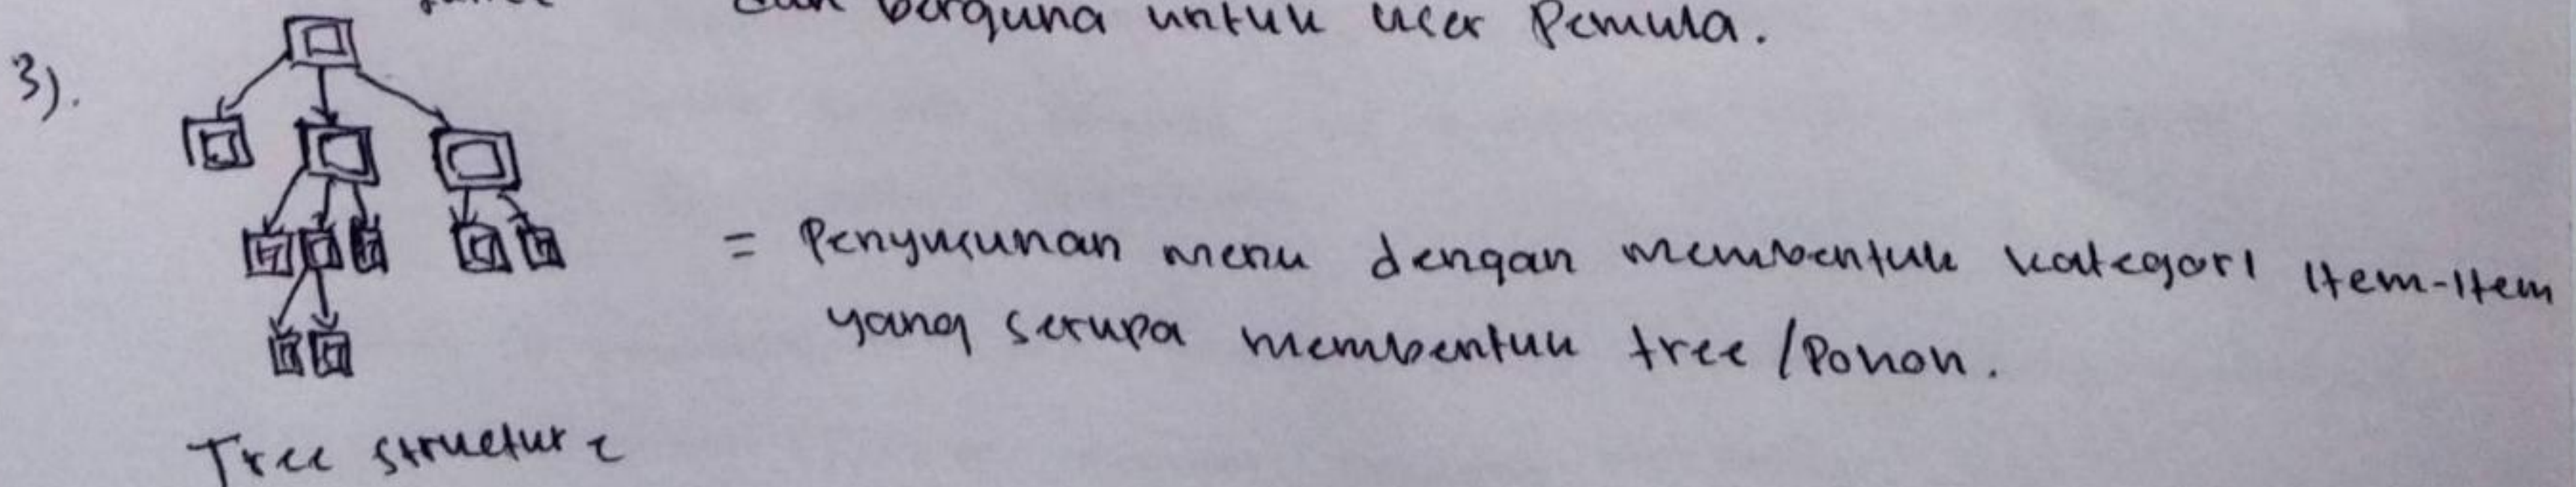 dan berguna untuk user Pemula.
3).
= Penyusunan menu dengan membentuk kategori Item-Item
yang serupa membentuk tree/Pohon.
Tree structure